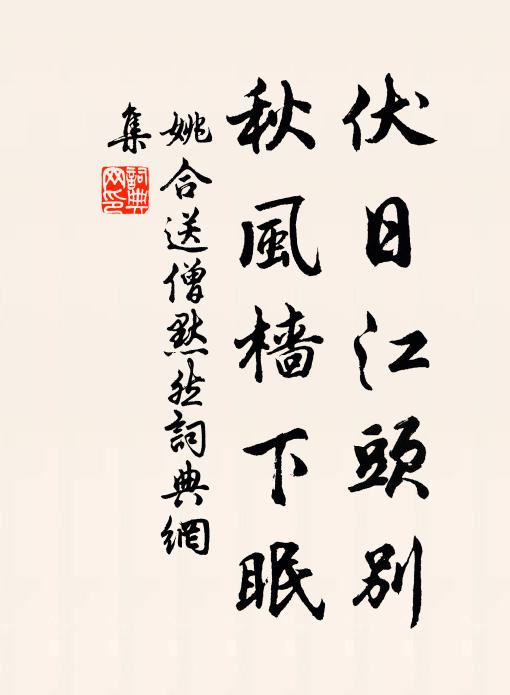 伏日江頭別
秋風檣下眠
姚合送僧默然詞典網
集
詞典網印